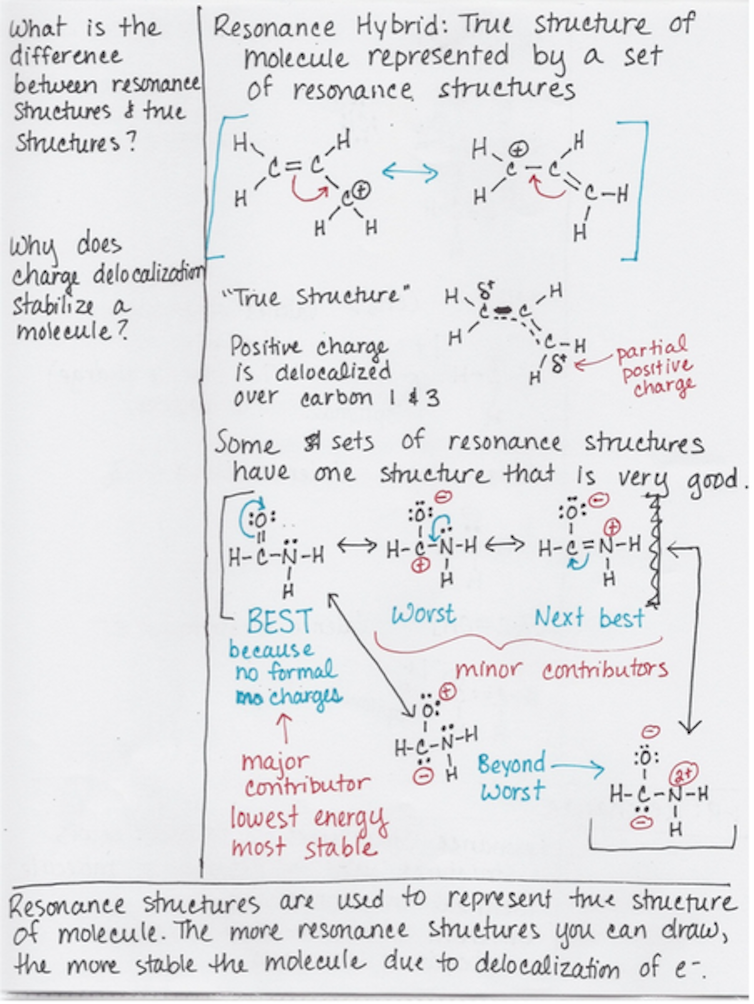 What is the
difference
between resonance
structures & true
structures?
Why does
charge delocalization
stabilize a
molecule?
Resonance Hybrid: True structure of
molecule represented by a set
of resonance structures
H H H
C=C C-C
H C⊕ H C-H
H H H
"True Structure"
Positive charge
is delocalized
over carbon 1 & 3
H δ+ H
C C
H C-H
H δ+
partial
positive
charge
Some sets of resonance structures
have one structure that is very good.
:O: :Ö: ⊖ :Ö: ⊖
H-C-N̈-H H-C-N̈-H H-C=N-H
H H H
BEST Worst Next best
because
no formal
charges
minor contributors
major
contributor
lowest energy
most stable
:O: ⊕
H-C-N̈-H
⊖ H
Beyond
worst
⊖
:Ö:
2+
H-C-N-H
⊖ H
Resonance structures are used to represent true structure
of molecule. The more resonance structures you can draw,
the more stable the molecule due to delocalization of e-.